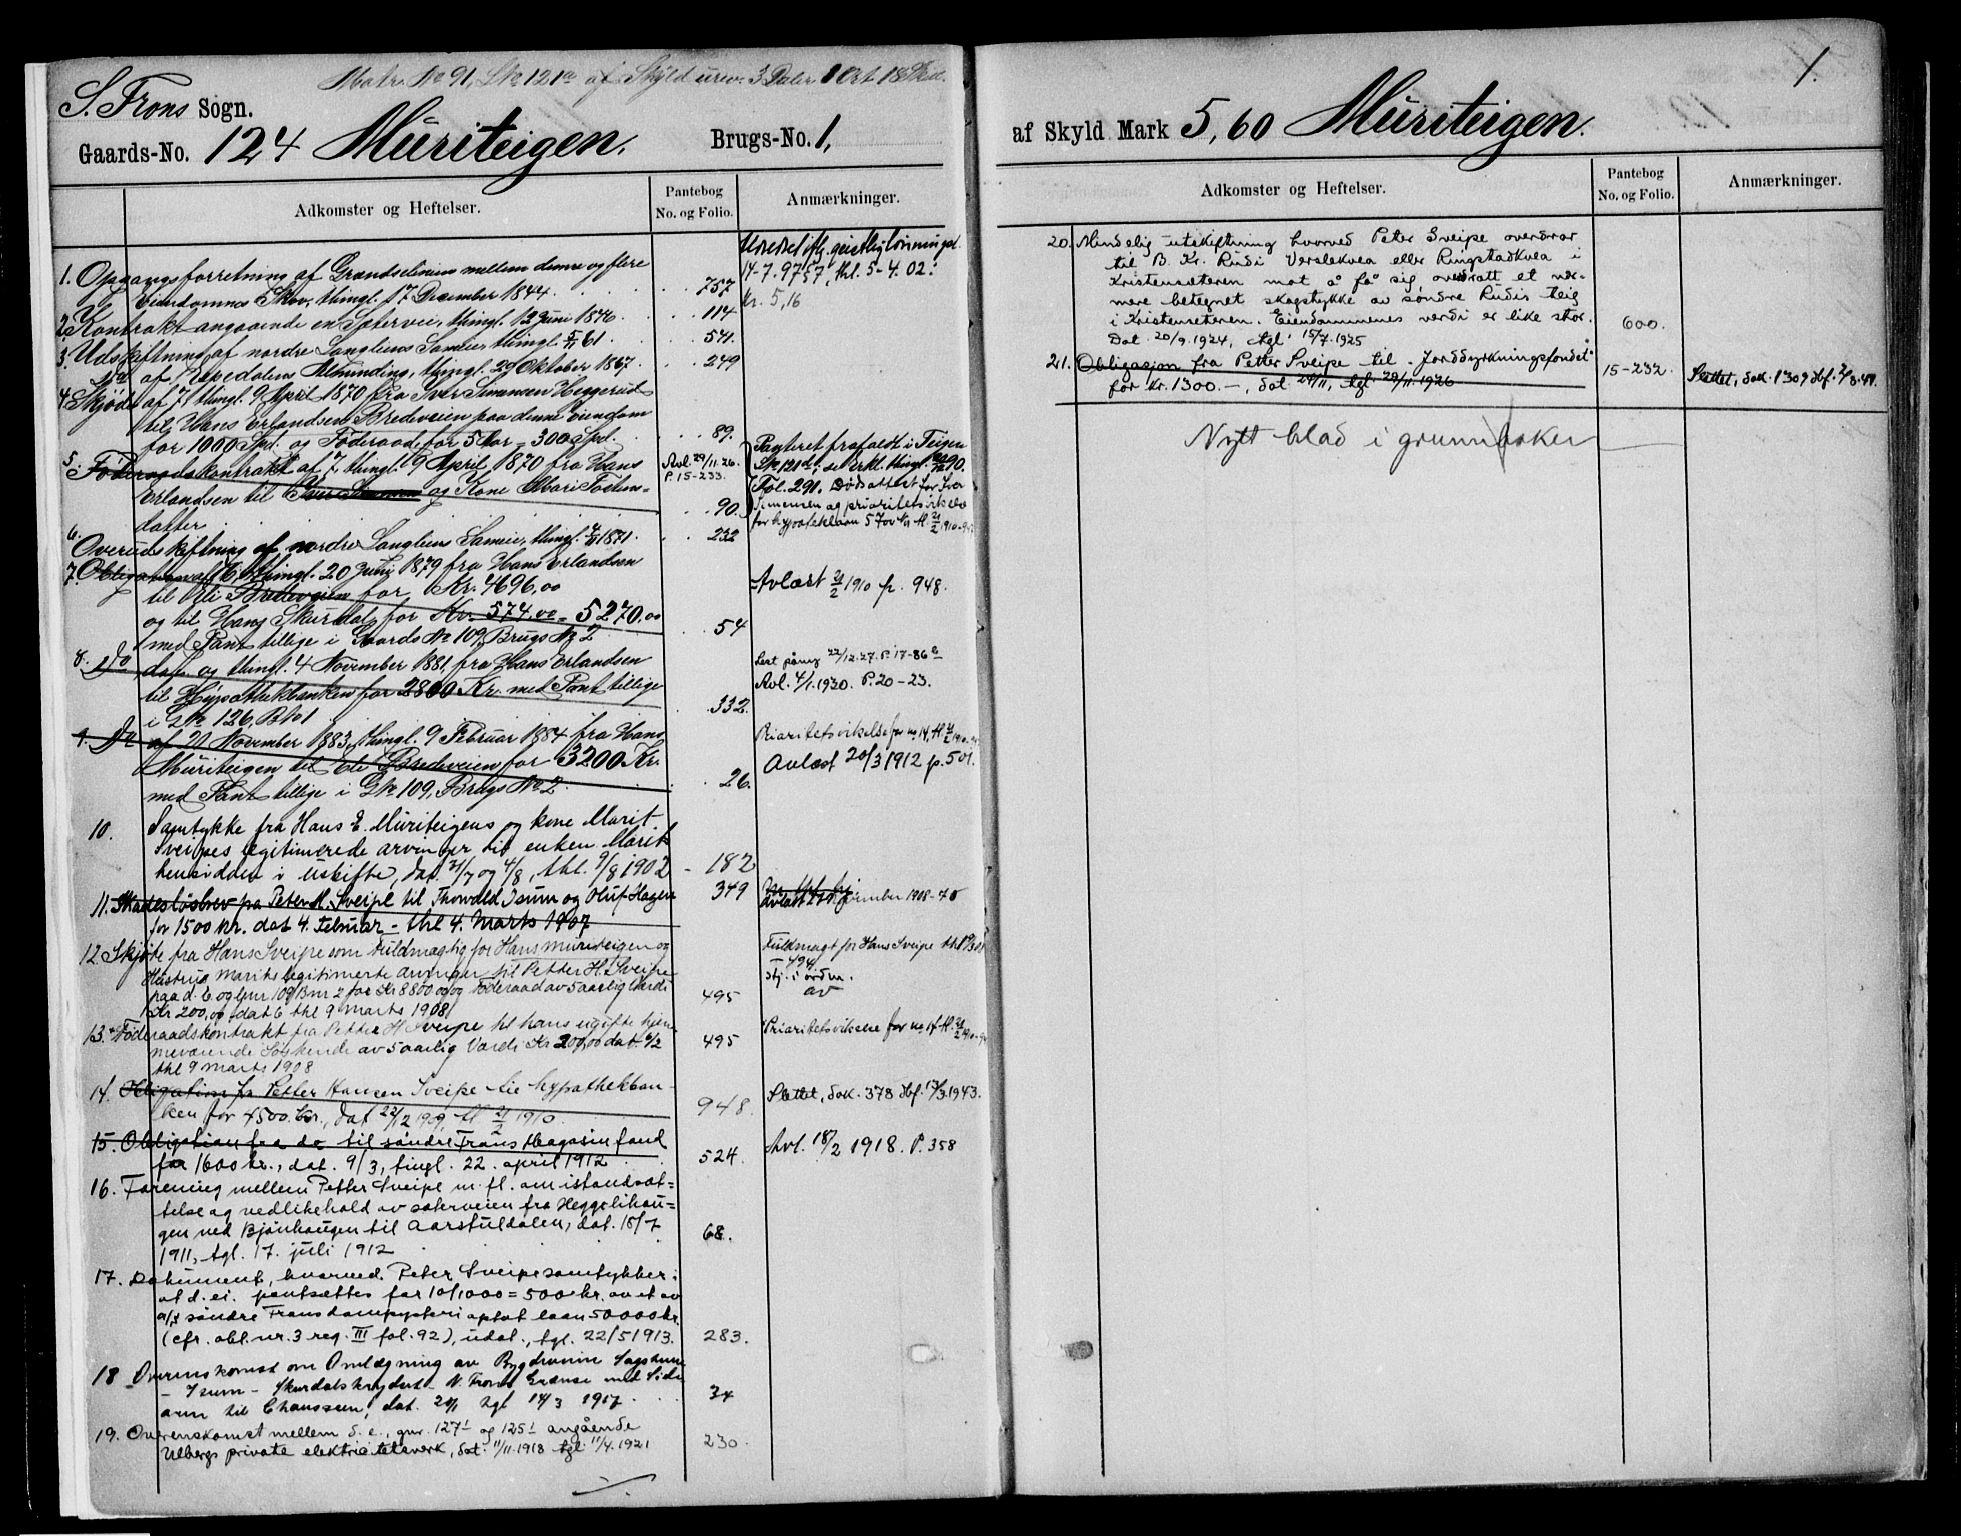 Matr. No 91, LNo 121a af Skyld urev. 3 Daler 1 Ort 18 Skil.
S. Frons Sogn.
Gaards-No. 124 Muriteigen. Brugs-No. 1,
Adkomster og Heftelser.
Pantebog No. og Folio.
Anmærkninger.
Hored iflg. geistlig
14-7. 97 57, thl. 5-4. 02:
Kr. 5,16
1. Opgangsforretning af Grændselinien mellem denne og flere
Eiendommes Skov, thingl. 17 December 1844. 757
2. Kontrakt angaaende en Sætervei, thingl. 12 Juni 1846. 114
3. Udskiftning af nordre Langliens Sameie, thingl. 5/11 61. 541.
af Espedalens Almending, thingl. 29 Oktober 1867. 249
4. Skjøde af 7, thingl. 9 April 1870 fra Iver Simensen Heggerud
til Hans Erlandsen Bredeveien paa denne Eiendom
for 1000 Spd. og Föderaad for 5 Aar = 300 Spd. 89.
5. Föderaadskontrakt af 7, thingl. 9 April 1870 fra Hans
Erlandsen til Iver Simensen og Kone Mari Tostens=
datter 90.
Avl. 29/11.26.
P. 15-233.
Panteret frafaldt i Teigen
LNo 121d, se Erkl. thingl. 90.
Fol. 291. Dødsattest for Iver
Simensen og prioritetsvikelse
for hypotheklaan 5700 Kr tl. 21/2 1910-94
6. Overudskiftning af nordre Langliens Sameie, thingl. 1871. 232
7. Obligation af 16, thingl. 20 Juni 1879 fra Hans Erlandsen
til Ole Bredeveien for Kr. 4696,00
og til Hans Skurdal for Kr. 574,00 = 5270,00
med Pant tillige i Gaards No 109, Brugs No 2 54
Avlæst 21/2 1910 p. 948.
8. Do dat. og thingl. 4 November 1881 fra Hans Erlandsen
til Hypothekbanken for 2800 Kr. med Pant tillige
i GNo 126, BNo 1 332.
Lest påny 22/12.27. P. 17-86
Avl. 4/1.1930. P. 20-23.
9. Do af 21 November 1883, thingl. 9 Februar 1884 fra Hans
Muriteigen til Ole Bredeveien for 3200 Kr.
med Pant tillige i GNo 109, Brugs No 2. 26.
Prioritetsvikelse for no 14, tl. 21/2 1910-94
Avlæst 20/3 1912 p. 501.
10. Samtykke fra Hans E. Muriteigens og kone Marit
Sveipes legitimerede arvinger til enken Marits
hensidden i uskifte, dat. 31/7 og 4/8, thl. 9/8 1902 - 182
11. Skadesløsbrev fra Peter H. Sveipe til Thorvald Isum og Oluf Hagen
for 1500 kr. dat 4. Februar - thl 4. Marts 1907 349
Avlæst november 1908-40
12. Skjöte fra Hans Sveipe som fuldmægtig for Hans Muriteigen og
Hustrus Marits legitimerte arvinger til Petter H. Sveipe
paa d. E og Gnr 109 Bnr 2 for Kr 8800 og Föderaad av 5 aarlig Værdi
Kr 200,00 dat 6 thl 9 Marts 1908 495
Fuldmagt for Hans Sveipe thl 9/3 08
- 494
Stj. i ordn.
av
13. Föderaadskontrakt fra Petter H Sveipe til hans ugifte hjem
meværende Søskende av 5 aarlig Værdi Kr 200,00 dat. 6/2
thl 9 Marts 1908 495
Prioritetsvikelse for no 14 tl. 21/2 1910-94
14. Obligation fra Petter Hansen Sveipe til hypothekban-
ken for 4500 kr., dat 22/12 1909, tl 21/2 1910. 948.
Slettet, dok. 378 dbf. 13/3.1943.
15. Obligation fra do til söndre Frons Magasinfond
for 1600 kr., dat. 9/3, tingl. 22. april 1912 524.
Avl. 18/2 1918. P. 358
16. Forening mellem Petter Sveipe m. fl. om istandsæt=
telse og vedlikehold av sæterveien fra Heggelihau=
gen ved Bjönhaugen til Aarstuldalen, dat. 15/7
1911, tgl. 17. juli 1912 68.
17. Dokument, hvorved Peter Sveipe samtykker i
at d. ei. pantsættes for 10/1000 = 500 kr. av et av
a/s søndre Frons dampysteri optat laan 50000 kr.
(cfr. obl. nr. 3 reg. III fol. 92), udat., tgl. 22/5 1913. 283.
18 Overenskomst om Omlægning av Bygdeveien Sagstuen
- Isum - Skurdalskrydset - N. Frons Grænse med Side
arm til Chausseen, dat. 20/1 tgl 14/3 1917. 34
19. Overenskomst mellem d. e., gnr. 127¹ og 125¹ angående
Ulbergs private elektricitetsverk, dat. 11/11.1918 tgl. 11/4.1921 230.
1.
af Skyld Mark 5,60 Muriteigen.
Adkomster og Heftelser.
Pantebog No. og Folio.
Anmærkninger.
20. Mindelig utskiftning hvorved Peter Sveipe overdrar
til B. Kr. Rudi Verslekvea eller Ringstadkvea i
Kristenseteren mot å få sig overdratt et nær-
mere betegnet skogstykke av søndre Rudis teig
i Kristenseteren. Eiendommenes verdi er like stor.
Dat. 20/9.1924, tgl. 15/7.1925 600.
21. Obligasjon fra Petter Sveipe til "Jorddyrkningsfondet"
for kr. 1300.-, dat 24/11, tgl. 29/11.1926 15-232.
Slettet, dok. 1309 dbf. 2/8.47.
Nytt blad i grunnboken